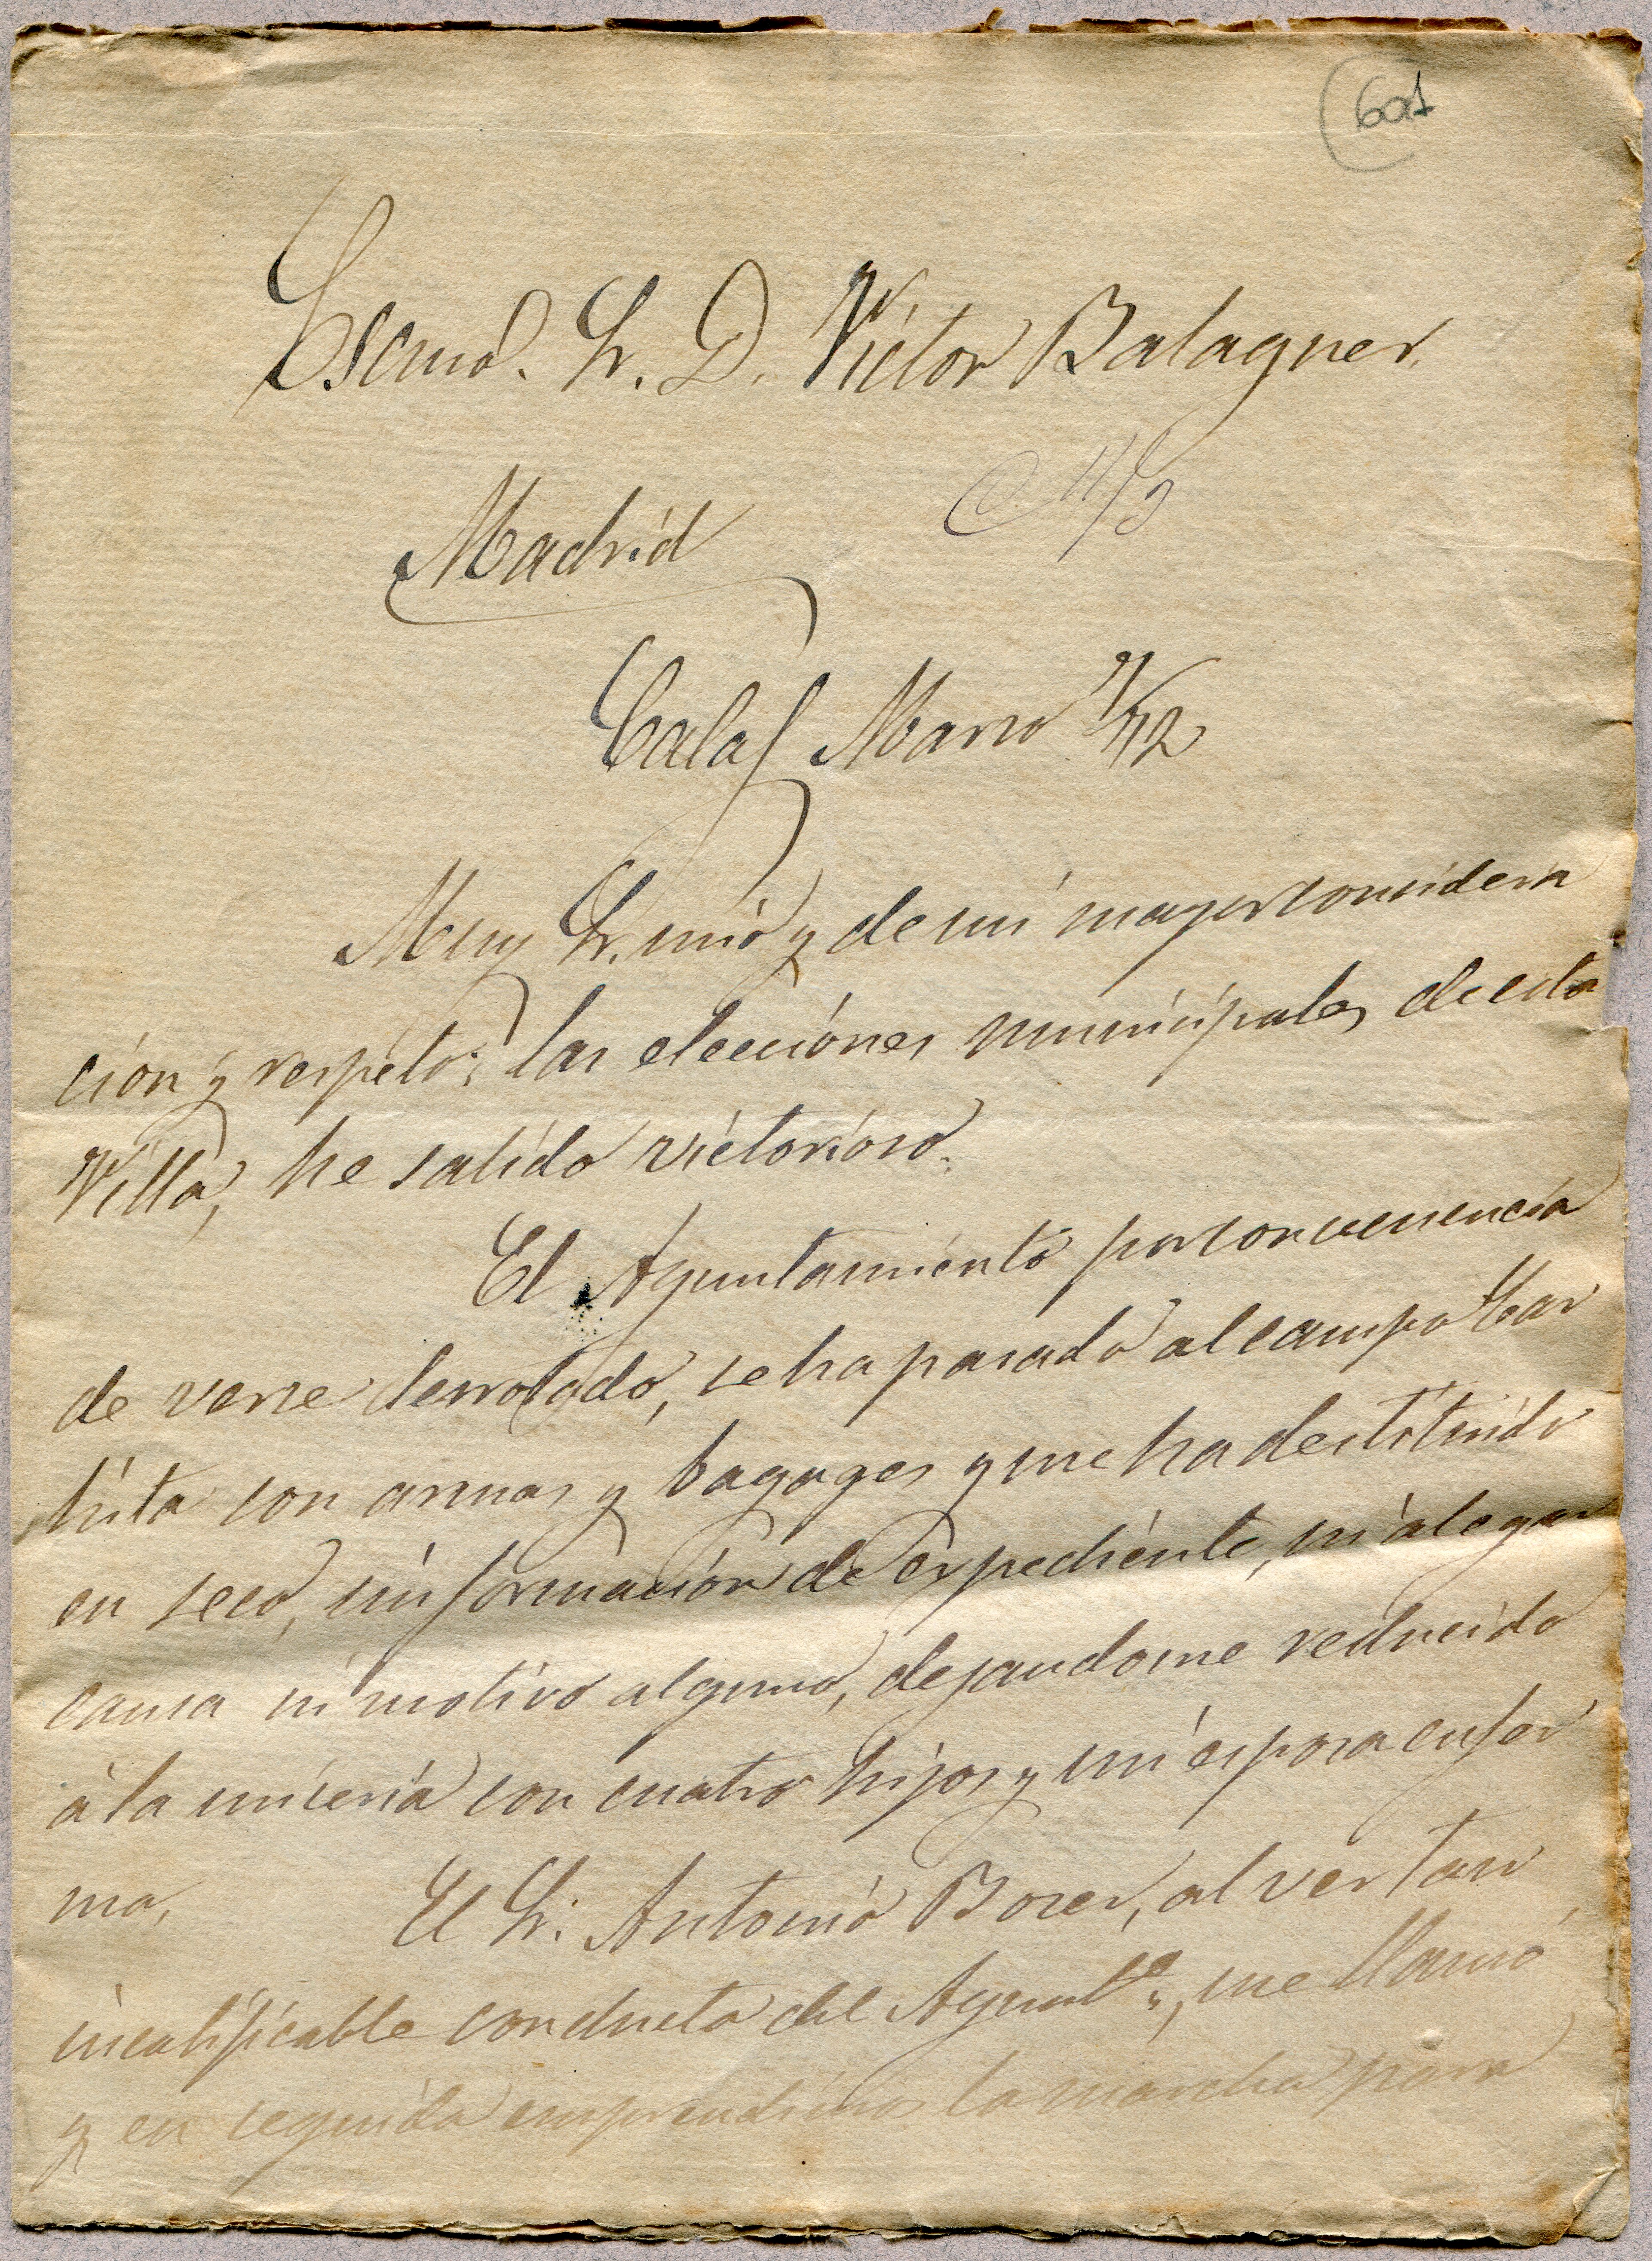 601
Escmo. Sr. D. Victor Balaguer.
C. 11/3
Madrid
Calaf Marzo 9/72
Muy Sr. mio y de mi mayor considera
ción y respeto: las elecciónes municipales de esta
Villa, he salido victorioso.
El Ayuntamiento por convenencia
de verse derrotado, se ha pasado al campo Car
lista con armas y bagages y me ha destituido
en seco, sin formación de espediente, ni alegar
causa ni motivo alguno, dejandome reducido
á la miseria con cuatro hijos y mi esposa enfer
ma.
El Sr. Antonio Borer, al ver tan
incalificable conducta del Ayunto., me llamó
y en seguida emprendimos la marcha para